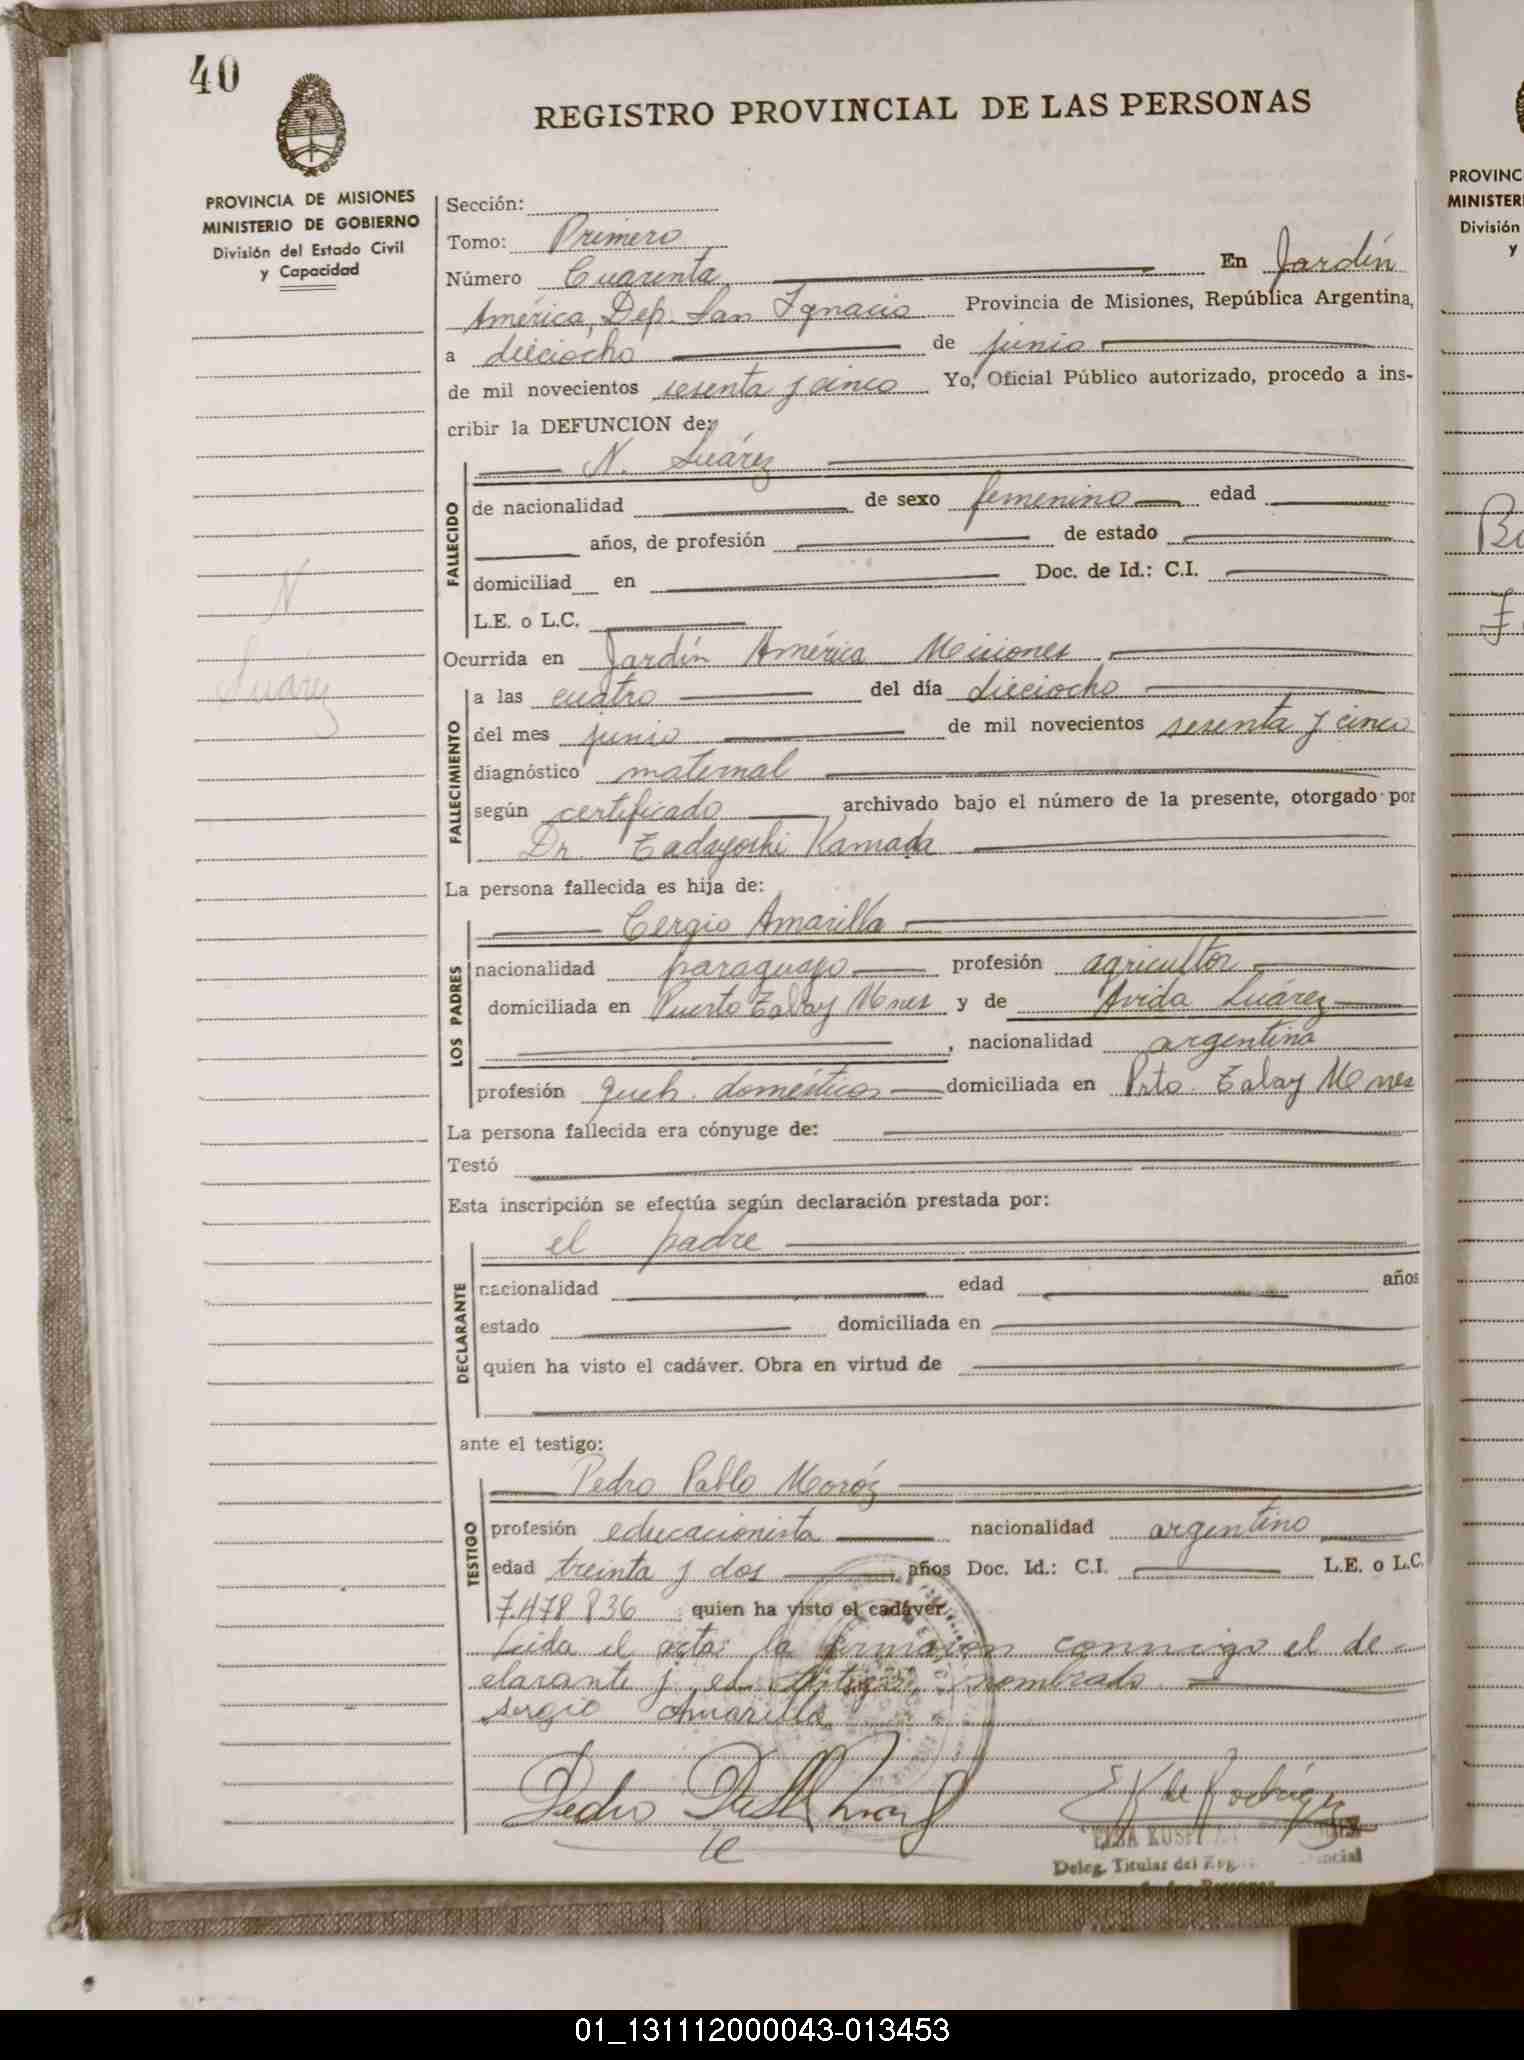 40
REGISTRO PROVINCIAL DE LAS PERSONAS
PROVINCIA DE MISIONES
MINISTERIO DE GOBIERNO
División del Estado Civil
y Capacidad
N.
Suárez
Sección:
Tomo: Primero
Número Cuarenta En Jardín
América, Dep. San Ignacio Provincia de Misiones, República Argentina,
a dieciocho de junio
de mil novecientos sesenta y cinco Yo, Oficial Público autorizado, procedo a ins-
cribir la DEFUNCION de:
N. Suárez
FALLECIDO
de nacionalidad de sexo femenino edad
años, de profesión de estado
domiciliad en Doc. de Id.: C.I.
L.E. o L.C.
Ocurrida en Jardín América Misiones
FALLECIMIENTO
a las cuatro del día dieciocho
del mes junio de mil novecientos sesenta y cinco
diagnóstico maternal
según certificado archivado bajo el número de la presente, otorgado por
Dr. Tadayoshi Kamada
La persona fallecida es hija de:
LOS PADRES
Cergio Amarilla
nacionalidad paraguayo profesión agricultor
domiciliada en Puerto Tabay Mnes y de Avida Suárez
, nacionalidad argentina
profesión queh. domésticos domiciliada en Prto. Tabay Mnes
La persona fallecida era cónyuge de:
Testó
Esta inscripción se efectúa según declaración prestada por:
el padre
DECLARANTE
nacionalidad edad años
estado domiciliada en
quien ha visto el cadáver. Obra en virtud de
ante el testigo:
TESTIGO
Pedro Pablo Moróz
profesión educacionista nacionalidad argentino
edad treinta y dos años Doc. Id.: C.I. L.E. o L.C.
7.478.836 quien ha visto el cadáver.
Leida el acta la firmaron conmigo el de-
clarante y el testigo nombrado.
Sergio Amarilla
Pedro
E K de Rodríguez
ELSA
Deleg. Titular del
PROVINC
MINISTER
División
y
01_131112000043-013453